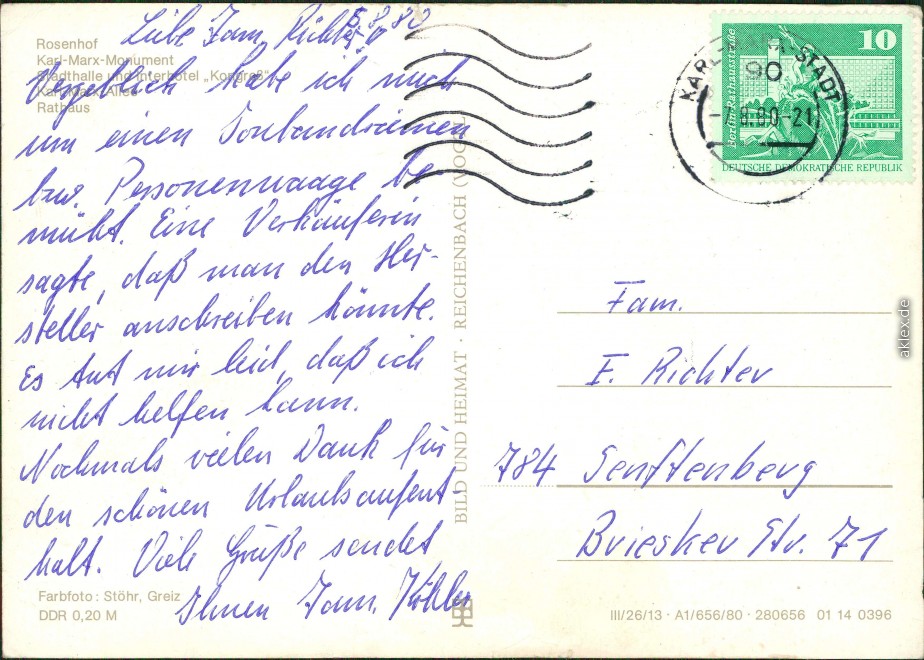 5.8.80
Liebe Fam. Richter,
Vergeblich habe ich mich
um einen
bzw. Personenwaage be
müht. Eine Verkäuferin
sagte, daß man den Her-
steller anschreiben könnte.
Es tut mir leid, daß ich
nicht helfen kann.
Nochmals vielen Dank für
den schönen Urlaubsaufent-
halt. Viele Grüße sendet
Ihnen Fam. Köhler
Rosenhof
Karl-Marx-Monument
Stadthalle und Interhotel „Kongreß“
Karl-Marx-Allee
Rathaus
Farbfoto: Stöhr, Greiz
DDR 0,20 M
BILD UND HEIMAT · REICHENBACH (VOGTL
KARL-MARX-STADT
90
-7.8.80-21
10
Berlin-Rathausstraße
DEUTSCHE DEMOKRATISCHE REPUBLIK
Fam.
E. Richter
784 Senftenberg
Briesker Str. 71
III/26/13 · A1/656/80 · 280656 01 14 0396
akpool.de